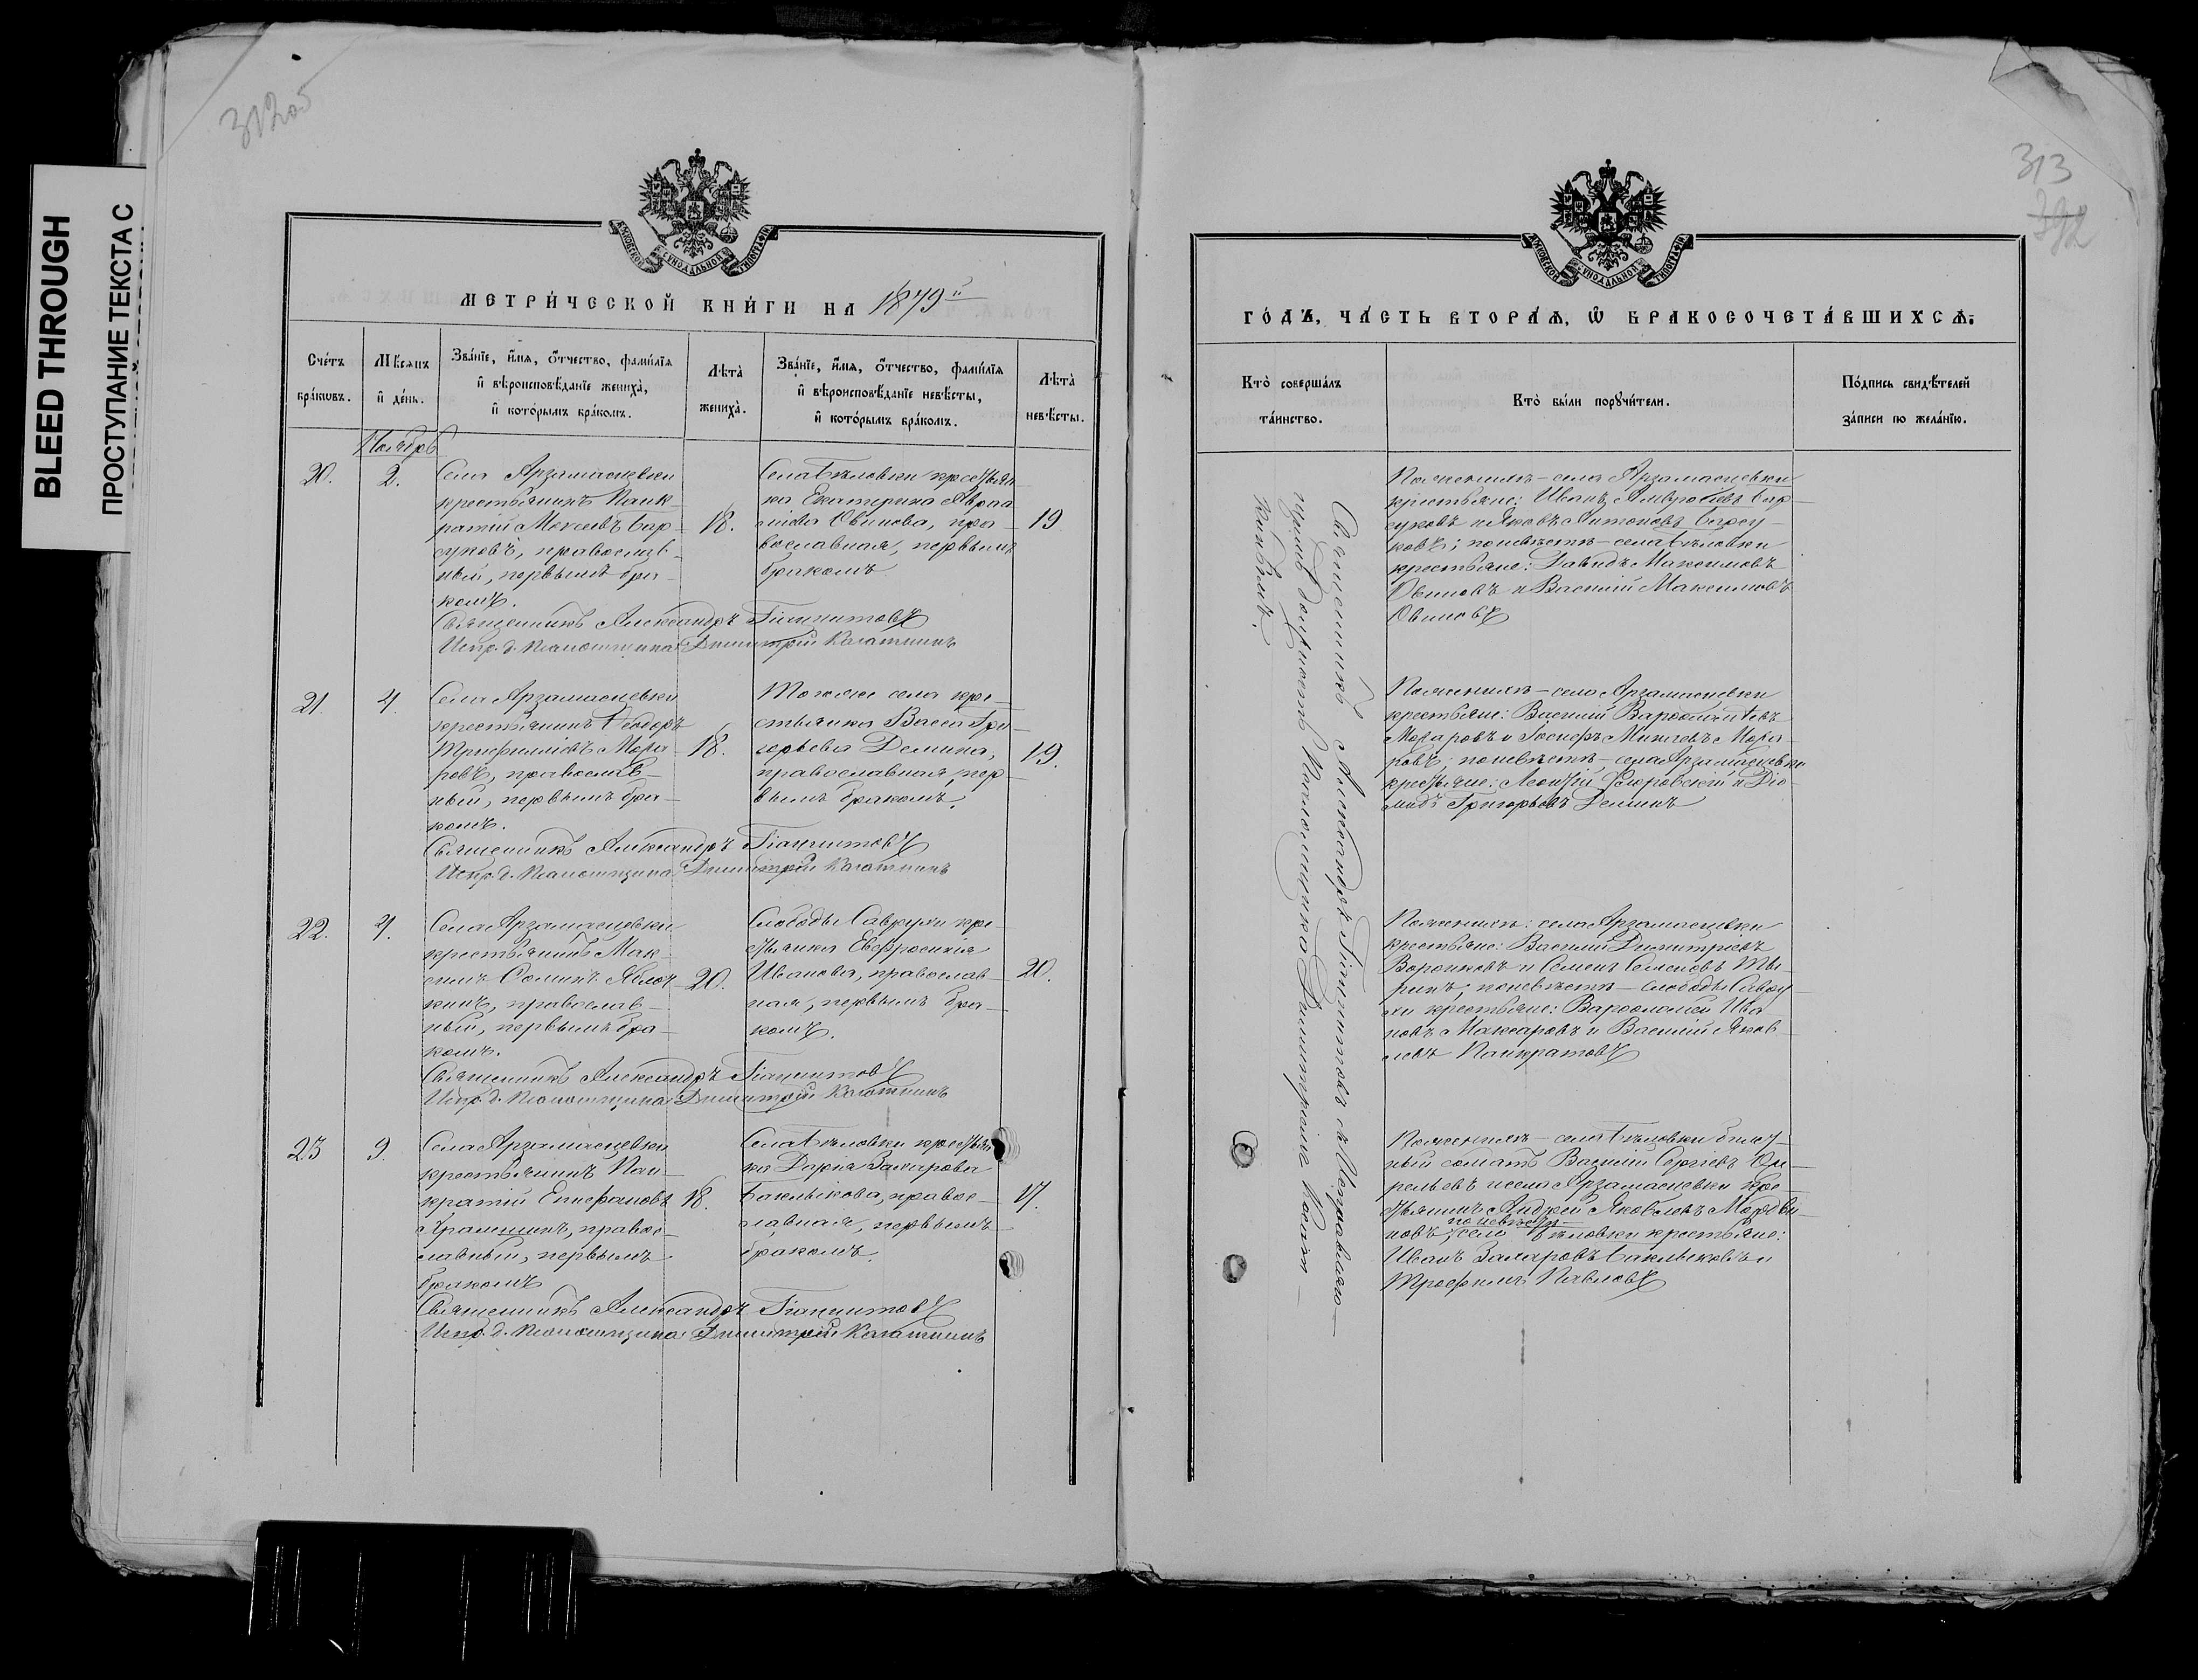 BLEED THROUGH
ПРОСТУПАНИЕ ТЕКСТА С
312об
МЕТРИ́ЧЕСКОЙ КНИ́ГИ НА 1879й
Сче́тъ бра́ковъ.
Мѣсяцъ и де́нь.
Зва́нїе, и҆́мѧ, ѻ҆́тчество, фами́лїѧ и҆ вѣроисповѣ́данїе жениха̀, и҆ кото́рымъ бра́комъ.
Лѣта̀ жениха̀.
Зва́нїе, и҆́мѧ, ѻ҆́тчество, фами́лїѧ и҆ вѣроисповѣ́данїе невѣ́сты, и҆ кото́рымъ бра́комъ.
Лѣта̀ невѣ́сты.
Ноябрь
20.
2.
Села Арзамасцевки
крестьянинъ Панк-
ратій Моисеевъ Бар-
суковъ, православ-
ный, первымъ бра-
комъ.
18.
Села Бѣловки крестьян-
ка Екатерина Авраа
міева Овинова, пра-
вославная, первымъ
бракомъ
19
Священникъ Александръ Гіацинтовъ
Испр. д. Псаломщика Димитрій
21.
4.
Села Арзамасцевки
крестьянинъ Ѳеодоръ
Трифиліевъ Мака-
ровъ, православ-
ный, первымъ бра-
комъ.
18.
Тогоже села кре-
стьянка Васса Гри-
горьева Демина,
православная, пер-
вымъ бракомъ.
19.
Священникъ Александръ Гіацинтовъ
Испр. д. Псаломщика Димитрій
22.
4.
Села Арзамасцевки
крестьянинъ Мак-
симъ Яблоч-
кинъ, православ-
ный, первымъ бра-
комъ.
20.
Слободы Саврухи кре-
стьянка Евфросинія
Иванова, православ-
ная, первымъ бра-
комъ.
20.
Священникъ Александръ Гіацинтовъ
Испр. д. Псаломщика Димитрій
23
9.
Села Арзамасцевки
крестьянинъ Пан-
кратій Епифановъ
правос-
лавный, первымъ
бракомъ
18.
Села Бѣловки крестьян
ка Дарія Захарова
Баклыкова, правос-
лавная, первымъ
бракомъ.
17.
Священникъ Александръ Гіацинтовъ
Испр. д. Псаломщика Димитрій
313
ГО́ДЪ, ЧА́СТЬ ВТОРА́Ѧ, Ѽ БРАКОСОЧЕТА́ВШИХСѦ:
Кто̀ соверша́лъ та́инство.
Кто̀ бы́ли порꙋчи́тели.
По́дпись свидѣ́телей за́писи по жела́нїю.
Священникъ Александръ Гіацинтовъ съ Исправляю-
щимъ должность Псаломщика Димитріемъ
По женихѣ – села Арзамасцевки
крестьяне: Иванъ Амвросіевъ Бар
суковъ и Яковъ Антоновъ Барсу-
ковъ; по невѣстѣ – села Бѣловки
крестьяне: Давидъ Максимовъ
Овиновъ и Василій Максимовъ
Овиновъ
По женихѣ – села Арзамасцевки
крестьяне: Василій Варѳоломѣевъ
Макаровъ и Іосифъ Михѣевъ Мака-
ровъ; по невѣстѣ – села Арзамасцевки
крестьяне: Леонтій и Діо-
мидъ Григорьевъ Деминъ
По женихѣ: села Арзамасцевки
крестьяне: Василій Димитріевъ
Воронковъ и Семенъ Семеновъ Тю-
ринъ; по невѣстѣ – слободы Савру
хи крестьяне: Варѳоломей Ива
новъ Макаровъ и Василій Яков
левъ Панкратовъ
По женихѣ – села Бѣловки билет-
ный солдатъ Василій Сергіевъ
и села Арзамасцевки кре-
стьянинъ Андрей Яковлевъ Мордви-
новъ; по невѣстѣ – села Бѣловки крестьяне:
Иванъ Захаровъ Баклыковъ и
Трофимъ Павловъ